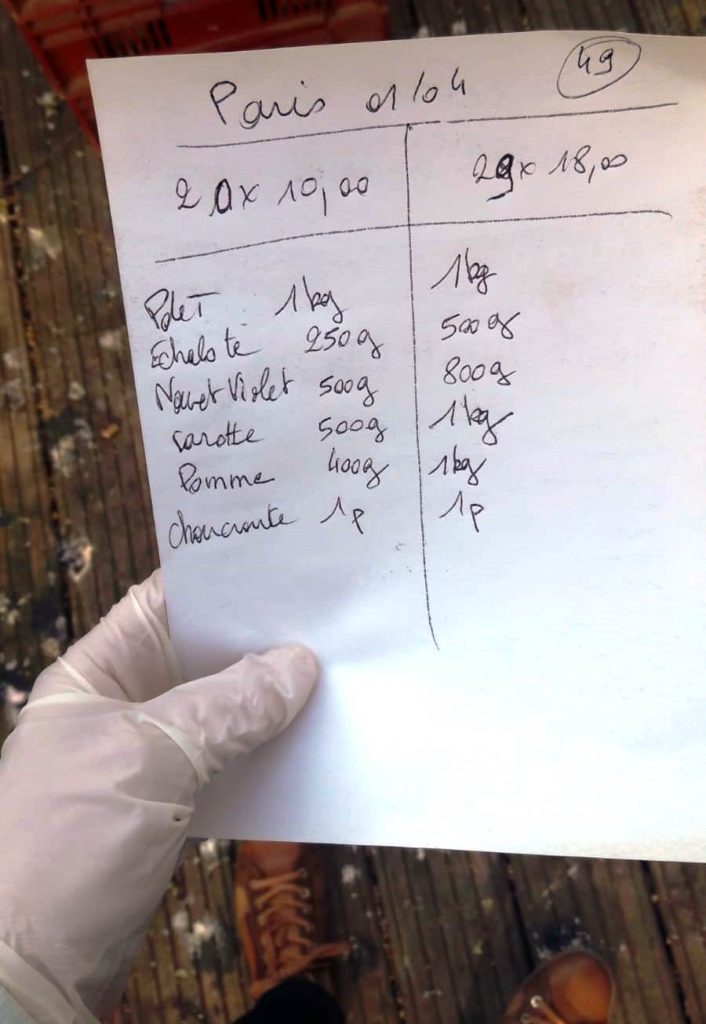 Paris 01/04 49
20x 10,00 29x 18,00
PdeT 1kg 1kg
Echalote 250g 500g
Navet Violet 500g 800g
carotte 500g 1kg
Pomme 400g 1kg
choucroute 1p 1p